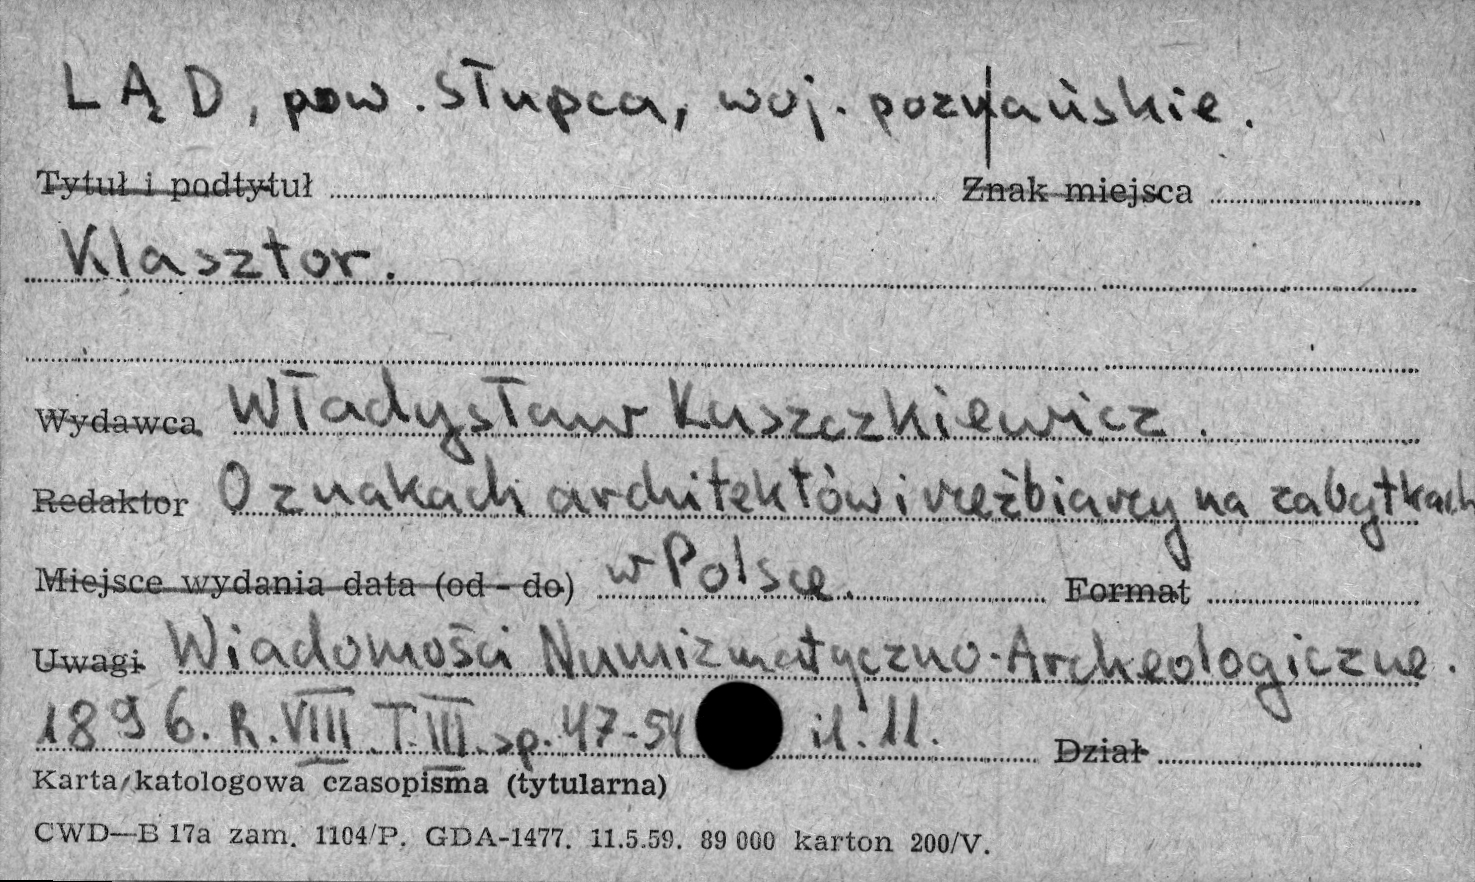 LĄD, pow. Słupca, woj. poznańskie.
Tytuł i podtytuł Znak miejsca
Klasztor.
Wydawca Władysław Łuszczkiewicz.
Redaktor O znakach architektów i rzeźbiarzy na zabytkach
Miejsce wydania data (od - do) w Polsce. Format
Uwagi Wiadomości Numizmatyczno-Archeologiczne.
1896. R. VIII T. III. sp. 47-54 il. 11. Dział
Karta katologowa czasopisma (tytularna)
CWD—B 17a zam. 1104/P. GDA-1477. 11.5.59. 89 000 karton 200/V.